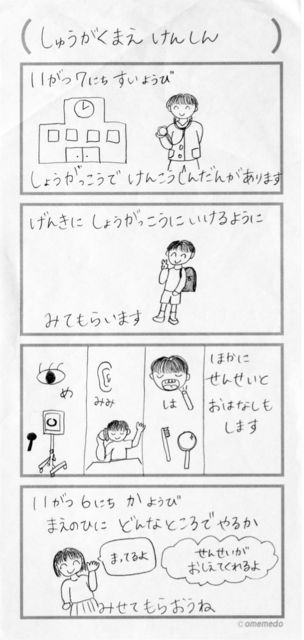 (しゅうがくまえ けんしん)
11がつ7にち すいようび
しょうがっこうで けんこうしんだんがあります
げんきに しょうがっこうに いけるように
みてもらいます
め
みみ
は
ほかに
せんせいと
おはなしも
します
11がつ 6にち かようび
まえのひに どんなところでやるか
まってるよ
せんせいが
おしえてくれるよ
みせてもらおうね
© omemedo